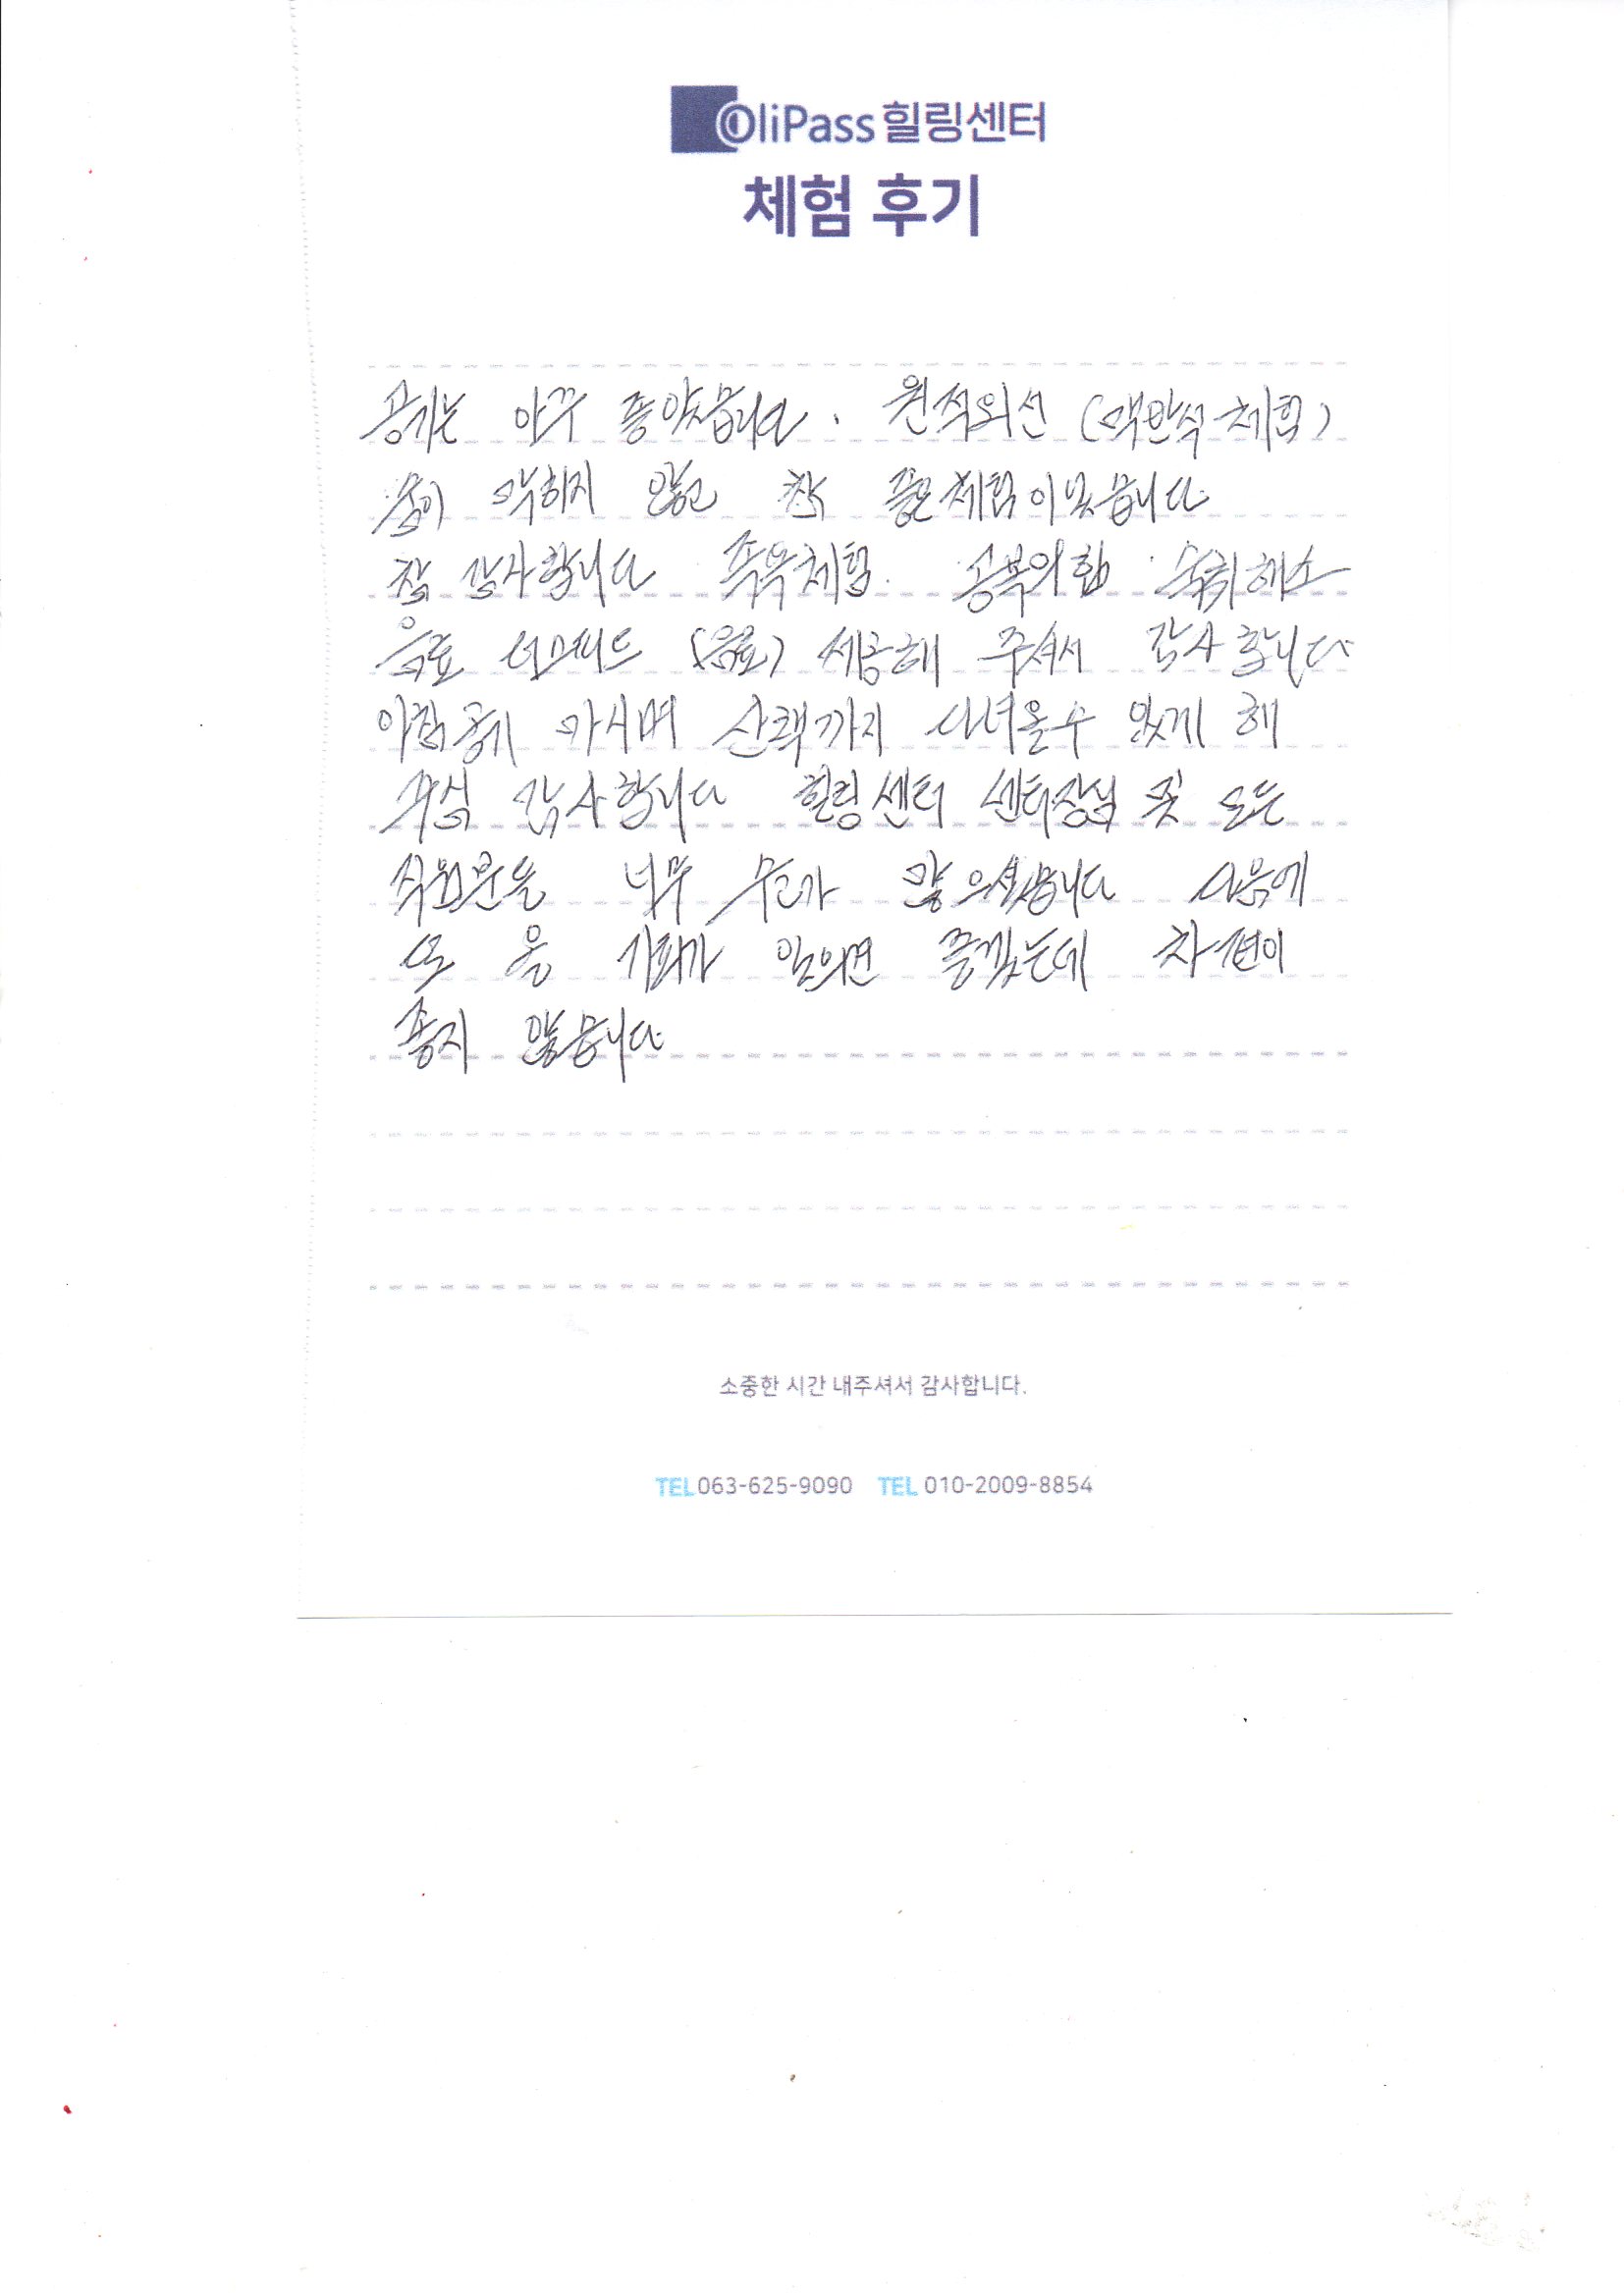 OliPass 힐링센터
체험 후기
공기는 아주 좋았습니다. 원적외선 (맥반석 체험)
숨이 막히지 않고 참 좋은 체험이였습니다
참 감사합니다 족욕체험. 공복의힘 숙취해소
음료 (음료) 제공해 주셔서 감사합니다
아침공기 마시며 산책까지 다녀올수 있게 해
주심 감사합니다 힐링센터 센터장님 및 모든
직원분들 너무 수고가 많으셨습니다 다음에
또 올 기회가 있으면 좋겠는데
좋지 않습니다
소중한 시간 내주셔서 감사합니다.
TEL 063-625-9090 TEL 010-2009-8854